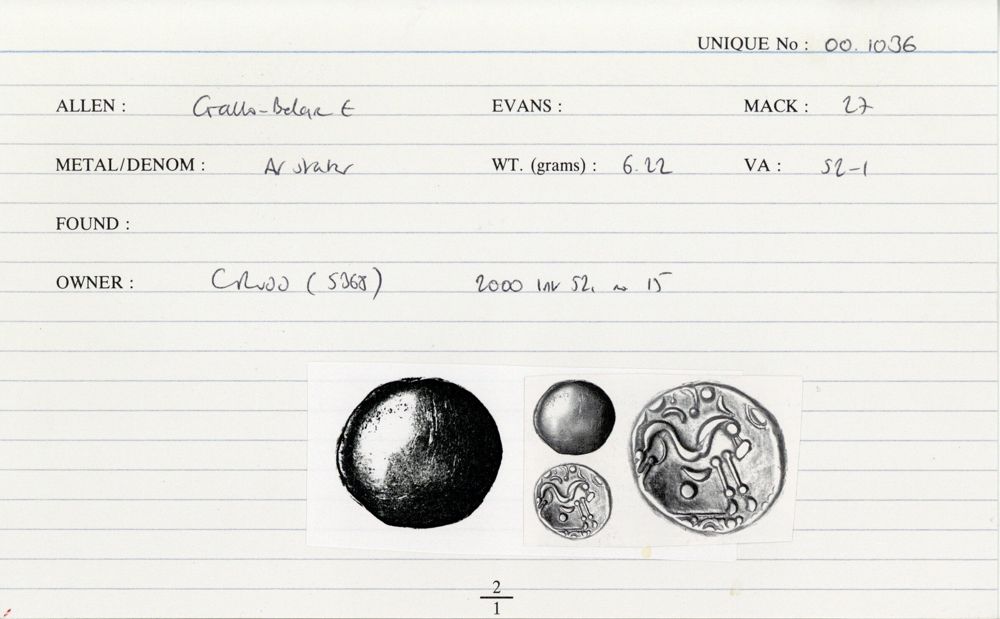 UNIQUE No : 00.1036
ALLEN : Gallo-Belgic E EVANS : MACK : 27
METAL/DENOM : AV stater WT. (grams) : 6.22 VA : 52-1
FOUND :
OWNER : CRUDD (5368) 2000 inv 52, no 15
2
1